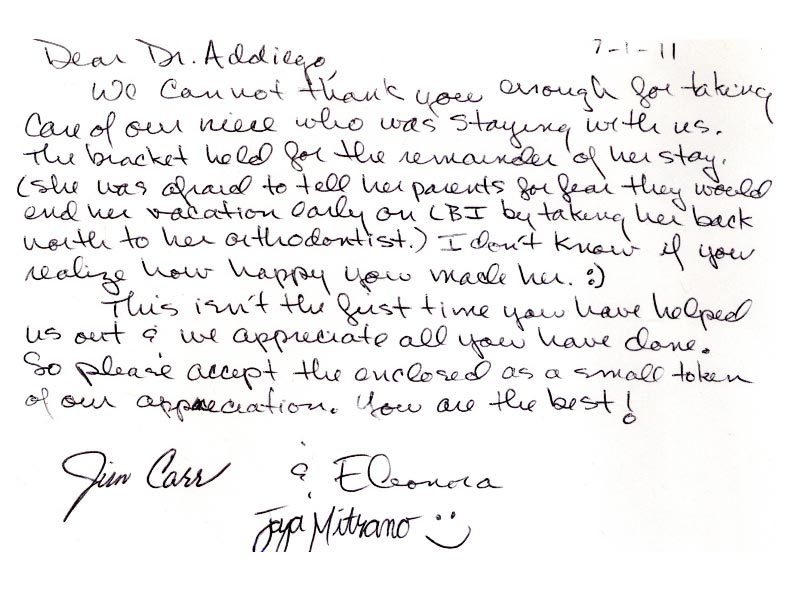 7-1-11
Dear Dr. Addiego,
We cannot thank you enough for taking
care of our niece who was staying with us.
The bracket held for the remainder of her stay.
(she was afraid to tell her parents for fear they would
end her vacation early on LBI by taking her back
north to her orthodontist.) I don't know if you
realize how happy you made her. :)
This isn't the first time you have helped
us out & we appreciate all you have done.
So please accept the enclosed as a small token
of our appreciation. You are the best!
Jim Carr & Eleonora
Mitrano